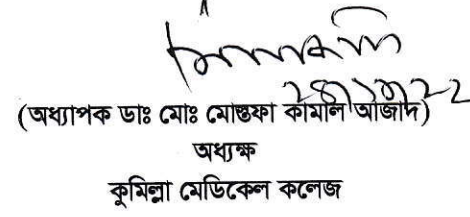 (অধ্যাপক ডাঃ মোঃ মোস্তফা কামাল আজাদ)
অধ্যক্ষ
কুমিল্লা মেডিকেল কলেজ